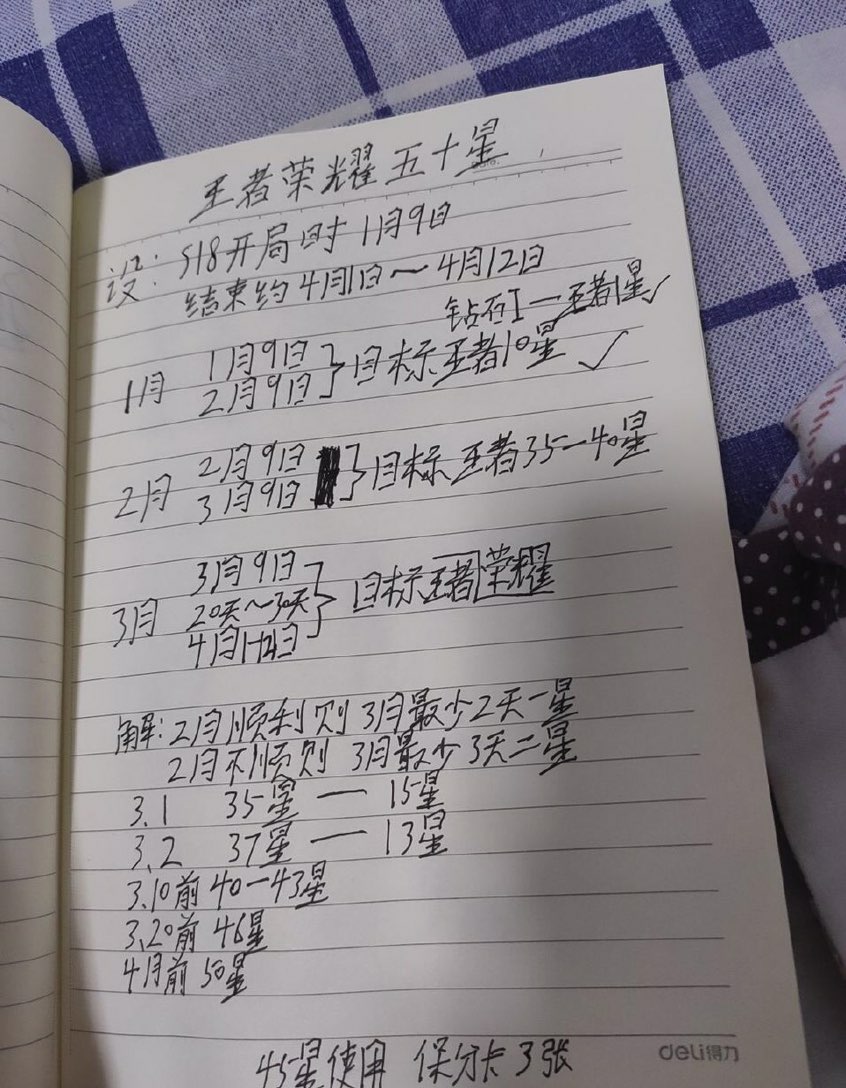 王者荣耀五十星
设: S18开局时 1月9日
结束约4月1日~4月12日
钻石I一王者1星✓
1月 1月9日
2月9日 }目标王者10星 ✓
2月 2月9日
3月9日 }目标 王者35一40星
3月 3月9日
20天~30天 }目标王者荣耀
4月1-12日
解:2月顺利则 3月最少2天一星
2月不顺则 3月最少3天二星
3.1 35星 — 15星
3.2 37星 — 13星
3.10前 40一43星
3.20前 46星
4月前 50星
45星使用 保分卡3张
deli得力